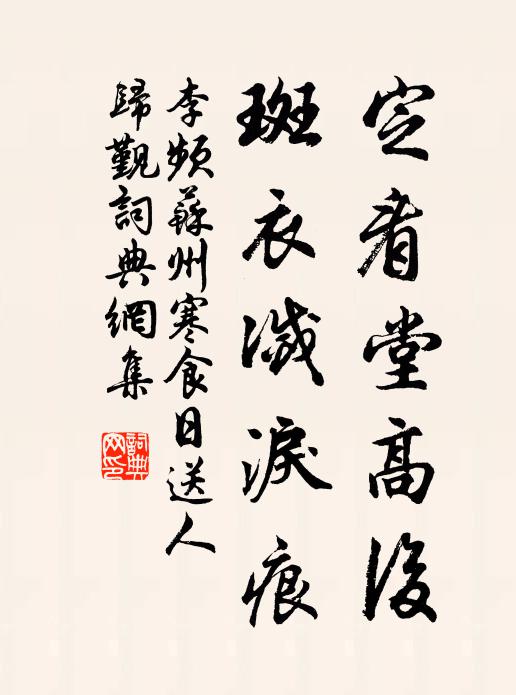 定看堂高後
斑衣滅淚痕
李頻蘇州寒食日送人
歸覲詞典網集
詞典網印